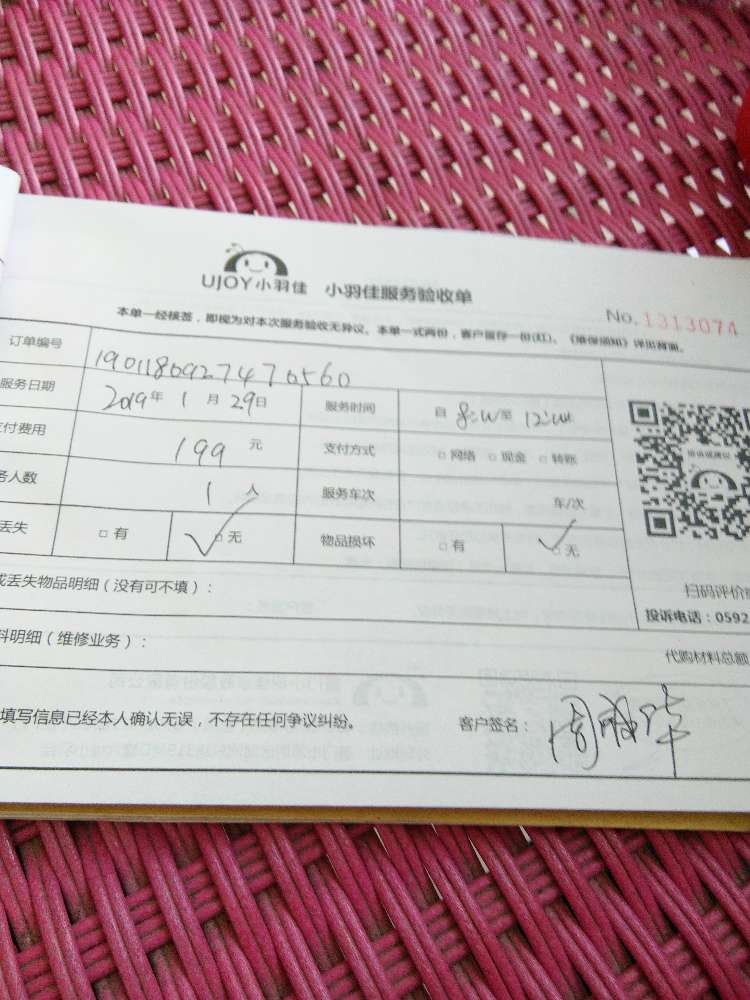 UJOY小羽佳 小羽佳服务验收单
No. 1313074
本单一经核签，即视为对本次服务验收无异议。本单一式两份，客户留存一份(红)。《维保须知》详见背面。
订单编号 190118092747 0560
服务日期 2019年 1 月 29日 服务时间 自 8:00至 12:00
付费用 199 元 支付方式 □ 网络 □ 现金 □ 转账
务人数 1 人 服务车次 车/次
丢失 □ 有 □ 无 物品损坏 □ 有 □ 无
或丢失物品明细（没有可不填）：
扫码评价
投诉电话：0592
料明细（维修业务）：
代购材料总额
填写信息已经本人确认无误，不存在任何争议纠纷。 客户签名：